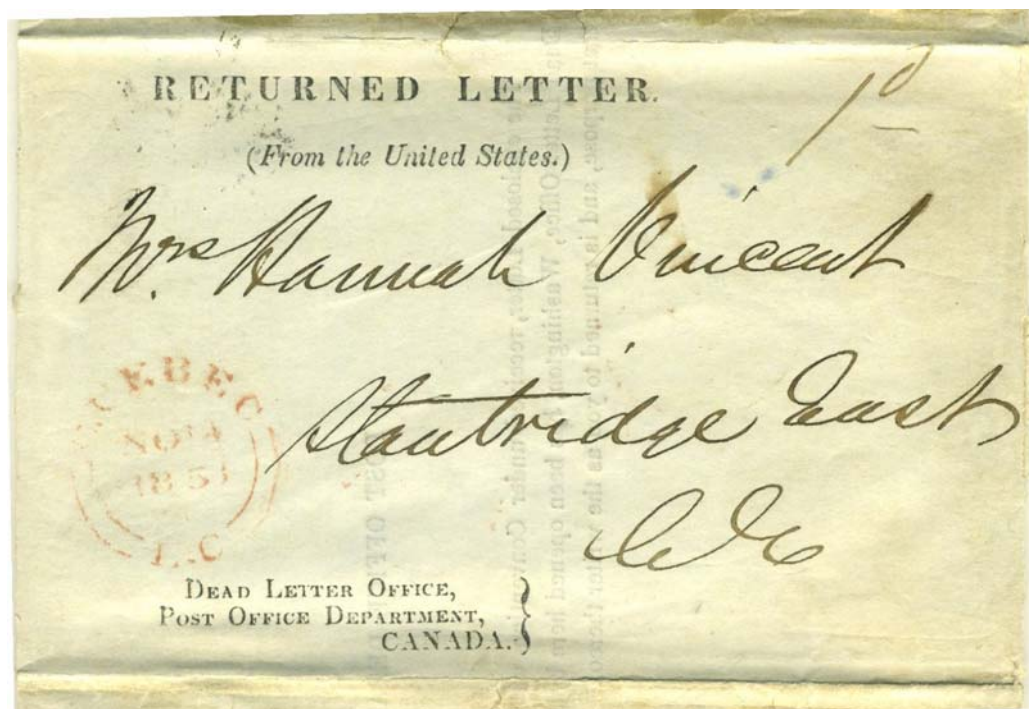 RETURNED LETTER.
(From the United States.)
1d
Mrs Hannah Vincent
Stanbridge East
C E
QUEBEC
NO 4
1851
L.C
DEAD LETTER OFFICE,
POST OFFICE DEPARTMENT,
CANADA.